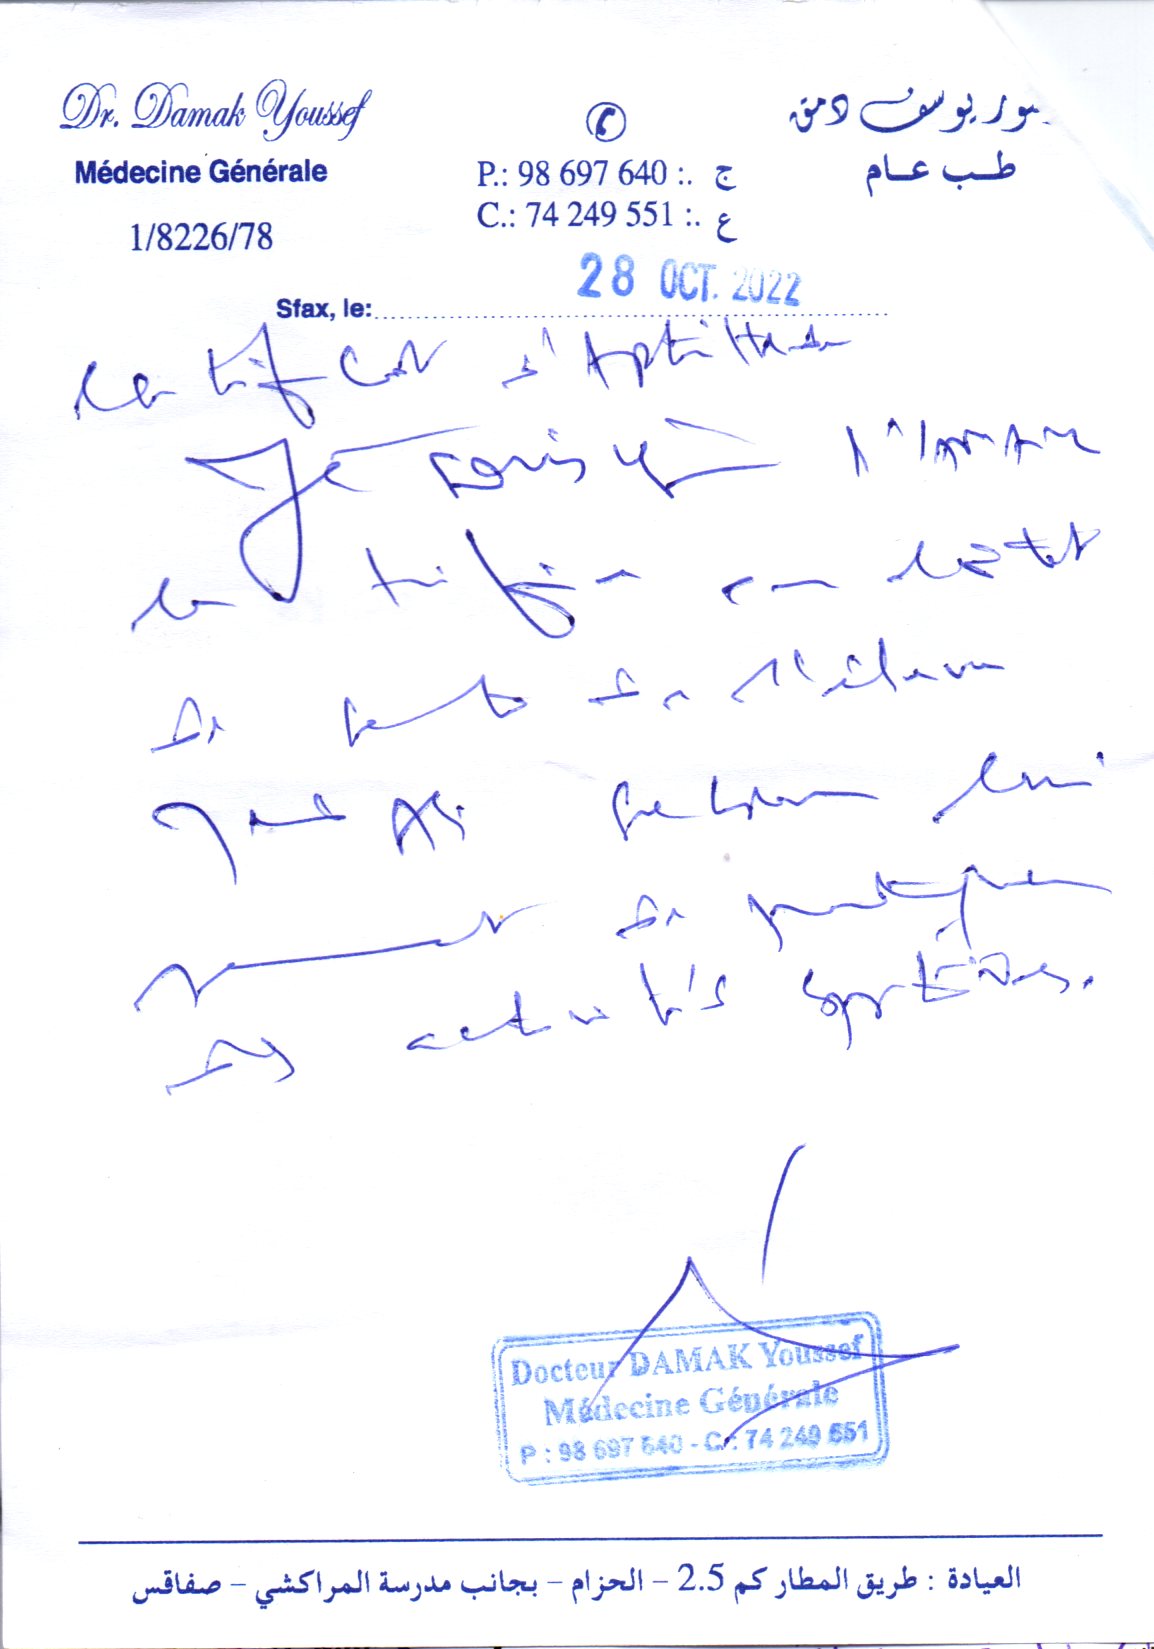 Dr. Damak Youssef
Médecine Générale
1/8226/78
P.: 98 697 640 :. ج
C.: 74 249 551 :. ع
يوسف دمق
طب عام
28 OCT. 2022
Sfax, le:
Certificat d'Aptitude
Je soussigné
certifie que l'état
de santé de l'élève
Ali lui
permet de pratiquer
des activités sportives.
Docteur DAMAK Youssef
Médecine Générale
P : 98 697 640 - C : 74 249 551
العيادة : طريق المطار كم 2.5 – الحزام – بجانب مدرسة المراكشي – صفاقس